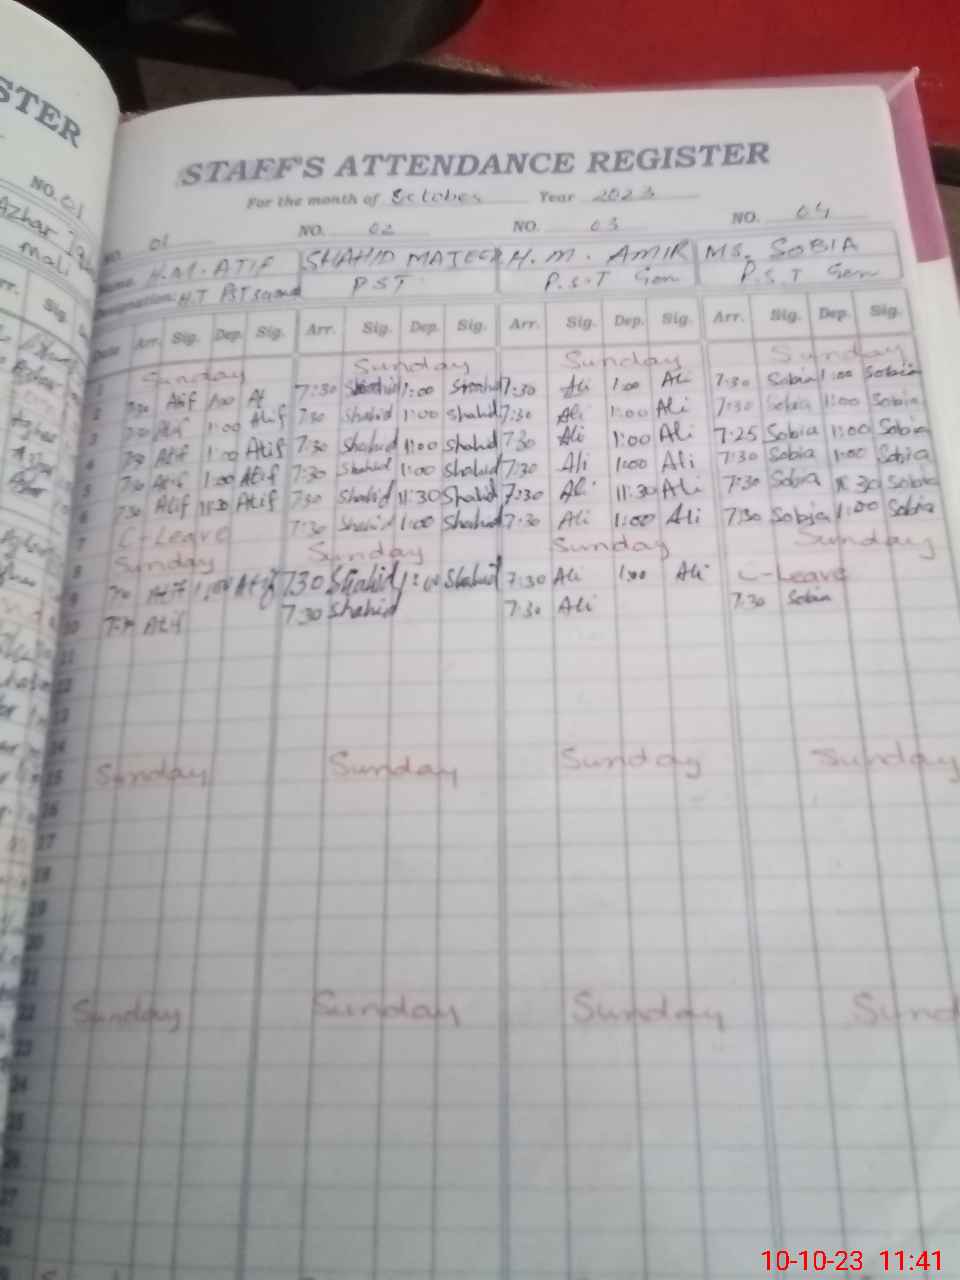 STER
NO. 01
Azhar
mali
Sig.
STAFF'S ATTENDANCE REGISTER
For the month of October Year 2023
NO. 01 NO. 02 NO. 03 NO. 04
Name. H.M. ATIF SHAHID MAJEED H. M. AMIR MS. SOBIA
Designation: H.T PST P.S.T P.S.T Gen P.S.T Gen
Date Arr. Sig. Dep. Sig. Arr. Sig. Dep. Sig. Arr. Sig. Dep. Sig. Arr. Sig. Dep. Sig.
1 Sunday Sunday Sunday Sunday
2 7:30 Atif 1:00 At 7:30 Shahid 1:00 Shahid 7:30 Ali 1:00 Ali 7:30 Sobia 1:00 Sobia
3 7:30 Atif 1:00 Atif 7:30 Shahid 1:00 Shahid 7:30 Ali 1:00 Ali 7:30 Sobia 1:00 Sobia
4 7:30 Atif 1:00 Atif 7:30 Shahid 1:00 Shahid 7:30 Ali 1:00 Ali 7:25 Sobia 1:00 Sobia
5 7:30 Atif 1:00 Atif 7:30 Shahid 1:00 Shahid 7:30 Ali 1:00 Ali 7:30 Sobia 1:00 Sobia
6 7:30 Atif 11:30 Atif 7:30 Shahid 11:30 Shahid 7:30 Ali 11:30 Ali 7:30 Sobia 11:30 Sobia
7 C-Leave 7:30 Shahid 1:00 Shahid 7:30 Ali 1:00 Ali 7:30 Sobia 1:00 Sobia
8 Sunday Sunday Sunday Sunday
9 7:30 Atif 1:00 Atif 730 Shahid 1:00 Shahid 7:30 Ali 1:00 Ali C-Leave
10 7:30 Atif 7:30 Shahid 7:30 Ali 7:30 Sobia
11
12
13
14
15 Sunday Sunday Sunday Sunday
16
17
18
19
20
21
22 Sunday Sunday Sunday Sund
23
24
25
26
27
28
10-10-23 11:41